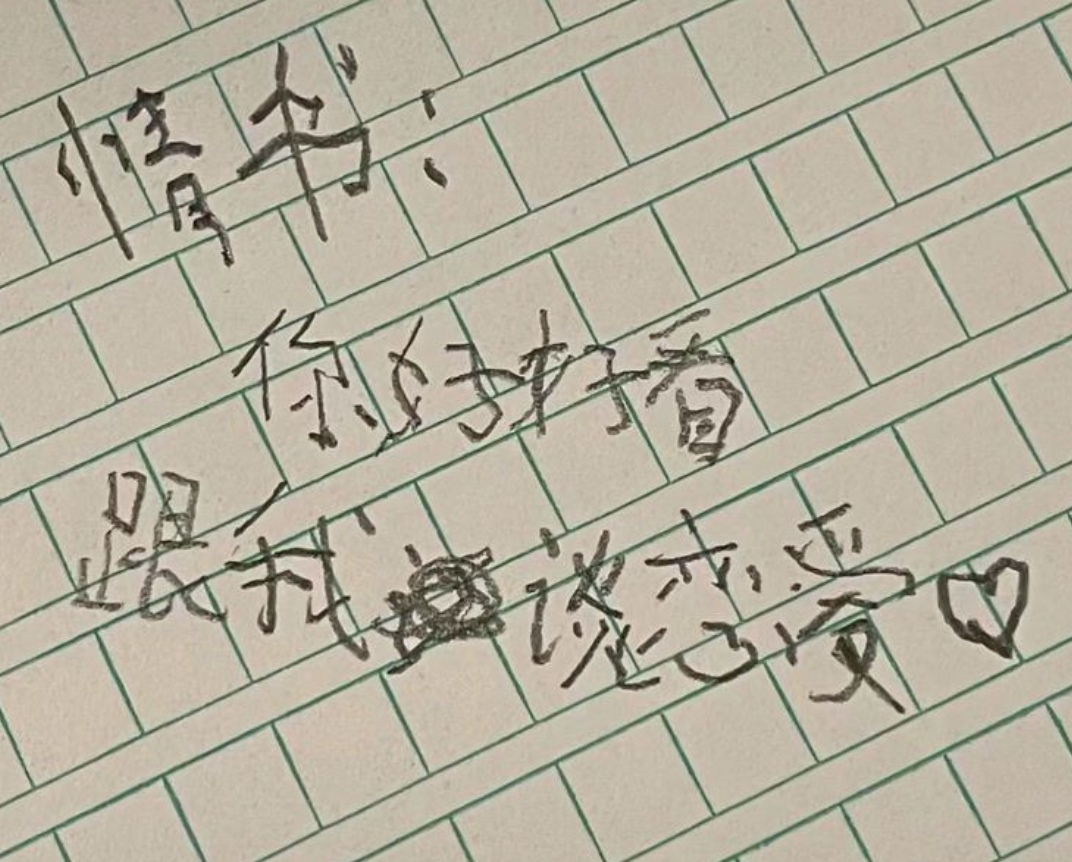 情书：
你好好看
跟我谈恋爱♡